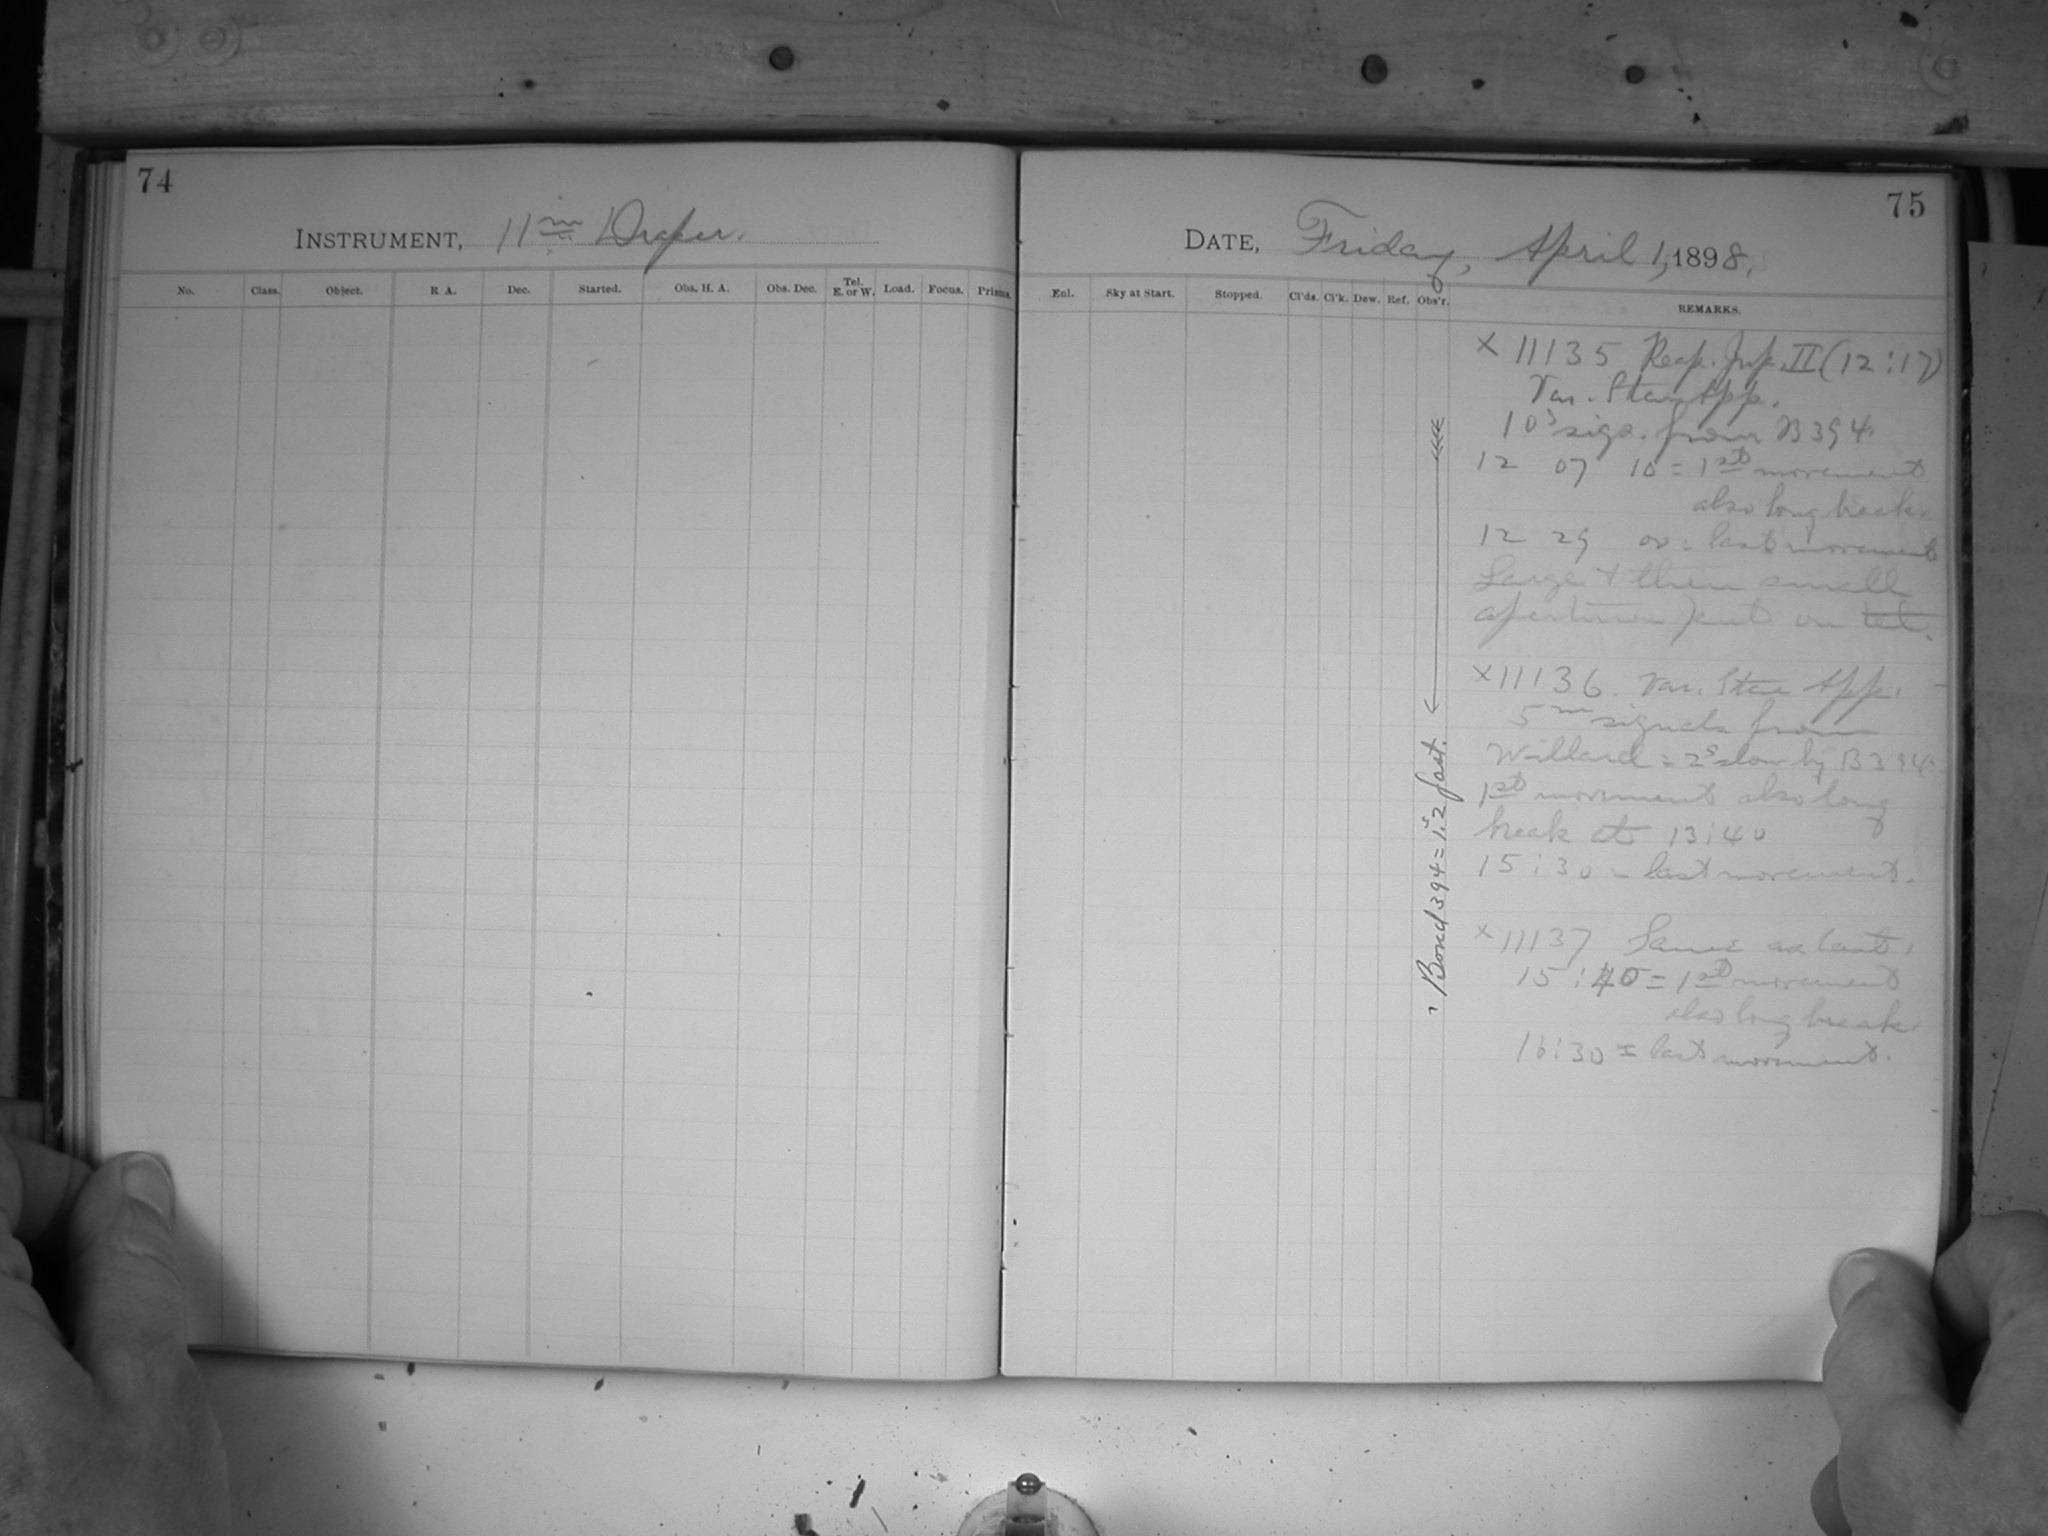 74
INSTRUMENT, 11 in Draper.
No. Class. Object. R. A. Dec. Started. Obs. H. A. Obs. Dec. Tel. E. or W. Load. Focus. Prisms.
75
DATE, Friday, April 1, 1898.
Enl. Sky at Start. Stopped. Cl'ds. Cl'k. Dew. Ref. Obs'r. REMARKS.
X 11135 Reap. Jup. II (12:17)
Var. Star App.
10s sigs. from B 394.
12 07 10 = 1st movement
also long break.
12 29 00 = last movement
Large & then small
aperture put on tel.
X 11136. Var. Star App.
5m signals from
Willard = 2s slow by B 394.
1st movement also long
break at 13:40
15:30 = last movement.
X 11137 Same as last.
15:40 = 1st movement
also long break.
16:30 = last movement.
Bond 394 = 1s.2 fast.